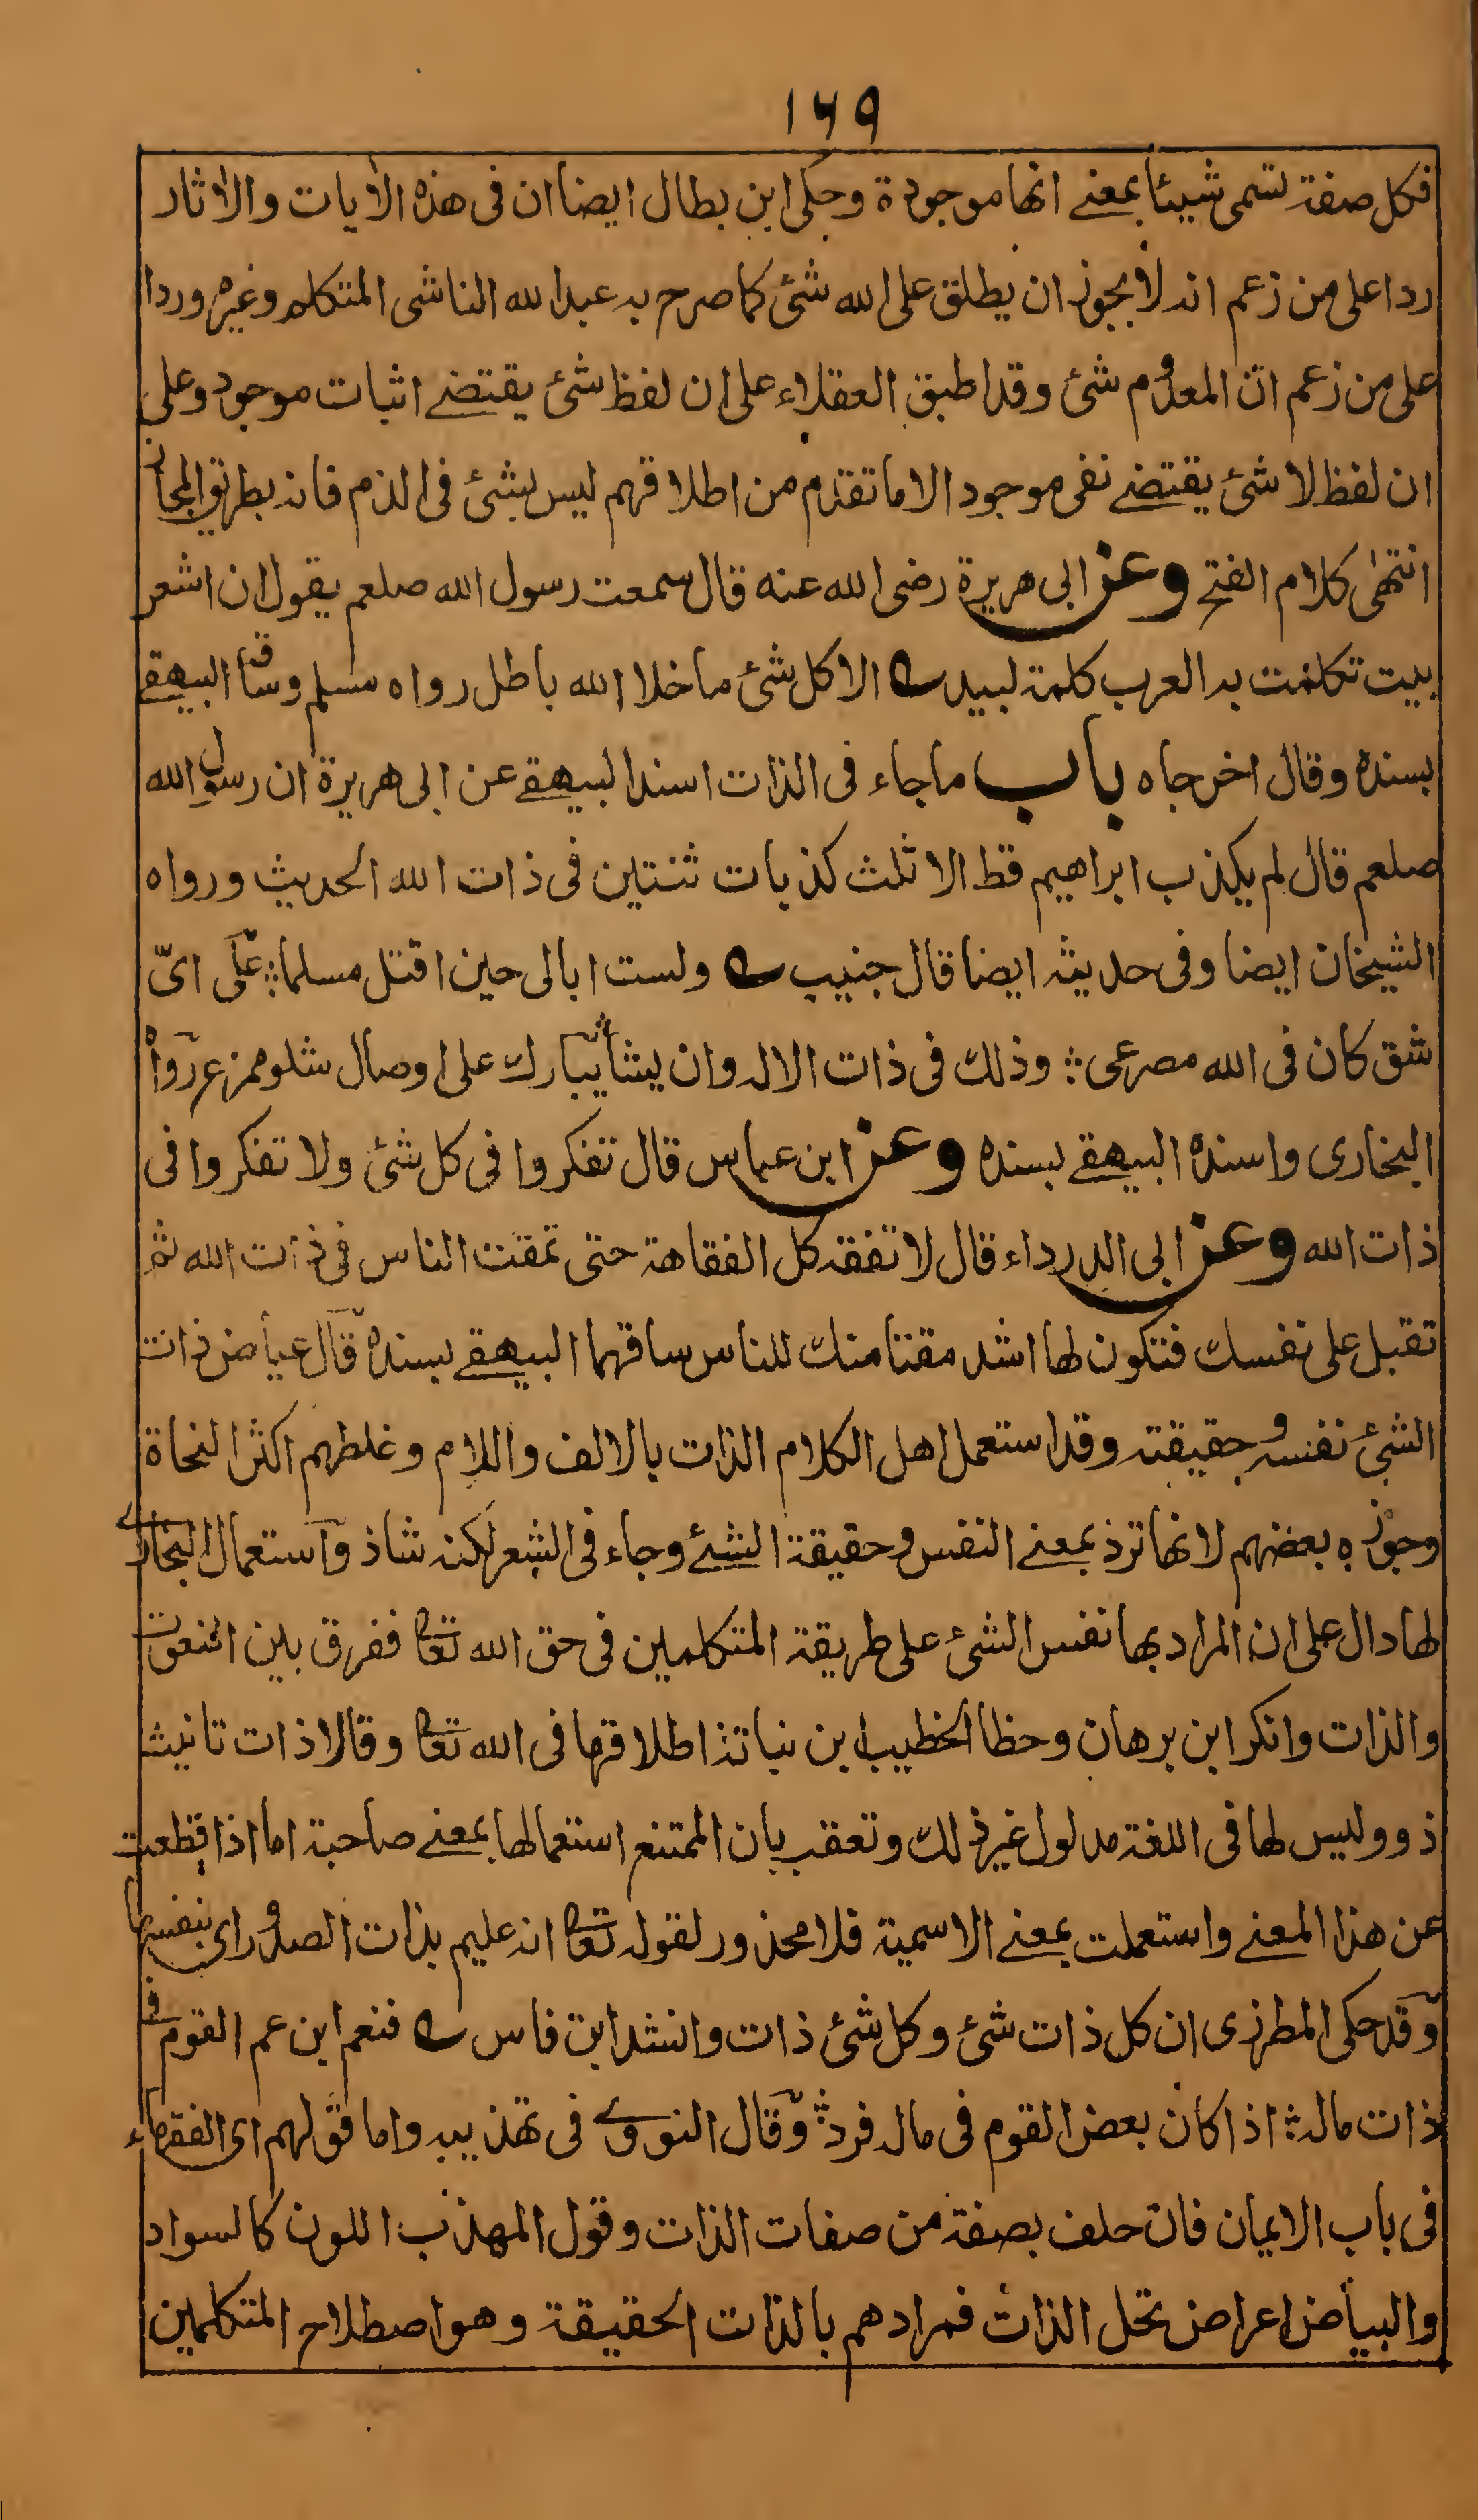 ۱۶۹
فكل صفة تسمى شيئا بمعنے انها موجودة وحكى ابن بطال ايضا ان فى هذه الايات والاثار
ردا على من زعم انه لا يجوز ان يطلق على الله شئ كما صرح به عبد الله الناشى المتكلم وغيره وردا
على من زعم ان المعدوم شئ وقد اطبق العقلاء على ان لفظ شئ يقتضے اثبات موجود وعلى
ان لفظ لا شئ يقتضے نفى موجود الا ما تقدم من اطلاقهم ليس بشئ فى الذم فانه بطريق المجاز
انتهى كلام الفتح وعن ابى هريرة رضى الله عنه قال سمعت رسول الله صلعم يقول ان اشعر
بيت تكلمت به العرب كلمة لبيد الا كل شئ ما خلا الله باطل رواه مسلم وساقه البيهقے
بسنده وقال اخرجاه باب ما جاء فى الذات اسند البيهقے عن ابى هريرة ان رسول الله
صلعم قال لم يكذب ابراهيم قط الا ثلث كذبات ثنتين فى ذات الله الحديث ورواه
الشيخان ايضا وفى حديثه ايضا قال خبيب ولست ابالى حين اقتل مسلما ؞ على اىّ
شق كان فى الله مصرعى ؞ وذلك فى ذات الاله وان يشأ يبارك على اوصال شلو ممزع رواه
البخارى واسنده البيهقے بسنده وعن ابن عباس قال تفكروا فى كل شئ ولا تفكروا فى
ذات الله وعن ابى الدرداء قال لا تفقه كل الفقاهة حتى تمقت الناس فى ذات الله ثم
تقبل على نفسك فتكون لها اشد مقتا منك للناس ساقهما البيهقے بسنده قال عياض ذات
الشئ نفسه وحقيقته وقد استعمل اهل الكلام الذات بالالف واللام وغلطهم اكثر النحاة
وجوزه بعضهم لانها ترد بمعنے النفس وحقيقة الشئے وجاء فى الشعر لكنه شاذ واستعمال البخارے
لها دال على ان المراد بها نفس الشئ على طريقة المتكلمين فى حق الله تعا ففرق بين النعوت
والذات وانكر ابن برهان وخطا الخطيب ابن نباتة اطلاقها فى الله تعا وقالا ذات تانيث
ذو وليس لها فى اللغة مدلول غير ذلك وتعقب بان الممتنع استعمالها بمعنے صاحبة اما اذا قطعت
عن هذا المعنے واستعملت بمعنے الاسمية فلا محذور لقوله تعا انه عليم بذات الصدور اى بنفسها
وقد حكى المطرزى ان كل ذات شئ وكل شئ ذات وانشد ابن فاس فنعم ابن عم القوم فى
ذات ماله ؞ اذا كان بعض القوم فى ماله فرد ؞ وقال النووے فى تهذيبه واما قولهم اى الفقهاء
فى باب الايمان فان حلف بصفة من صفات الذات وقول المهذب اللون كالسواد
والبياض اعراض تحل الذات فمرادهم بالذات الحقيقة وهو اصطلاح المتكلمين